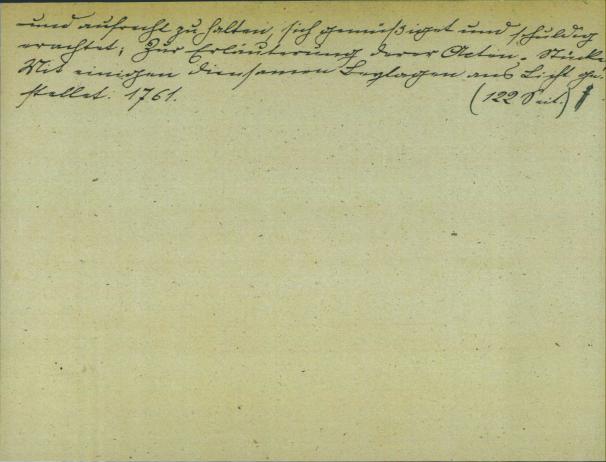 und aufrecht zu halten, sich gemüßiget und schuldig
erachtet; Zur Erläuterung derer Actin-Stücke
Mit einigen diensamen Beylagen ans Licht ge-
stellet. 1761. (122 Seit.)